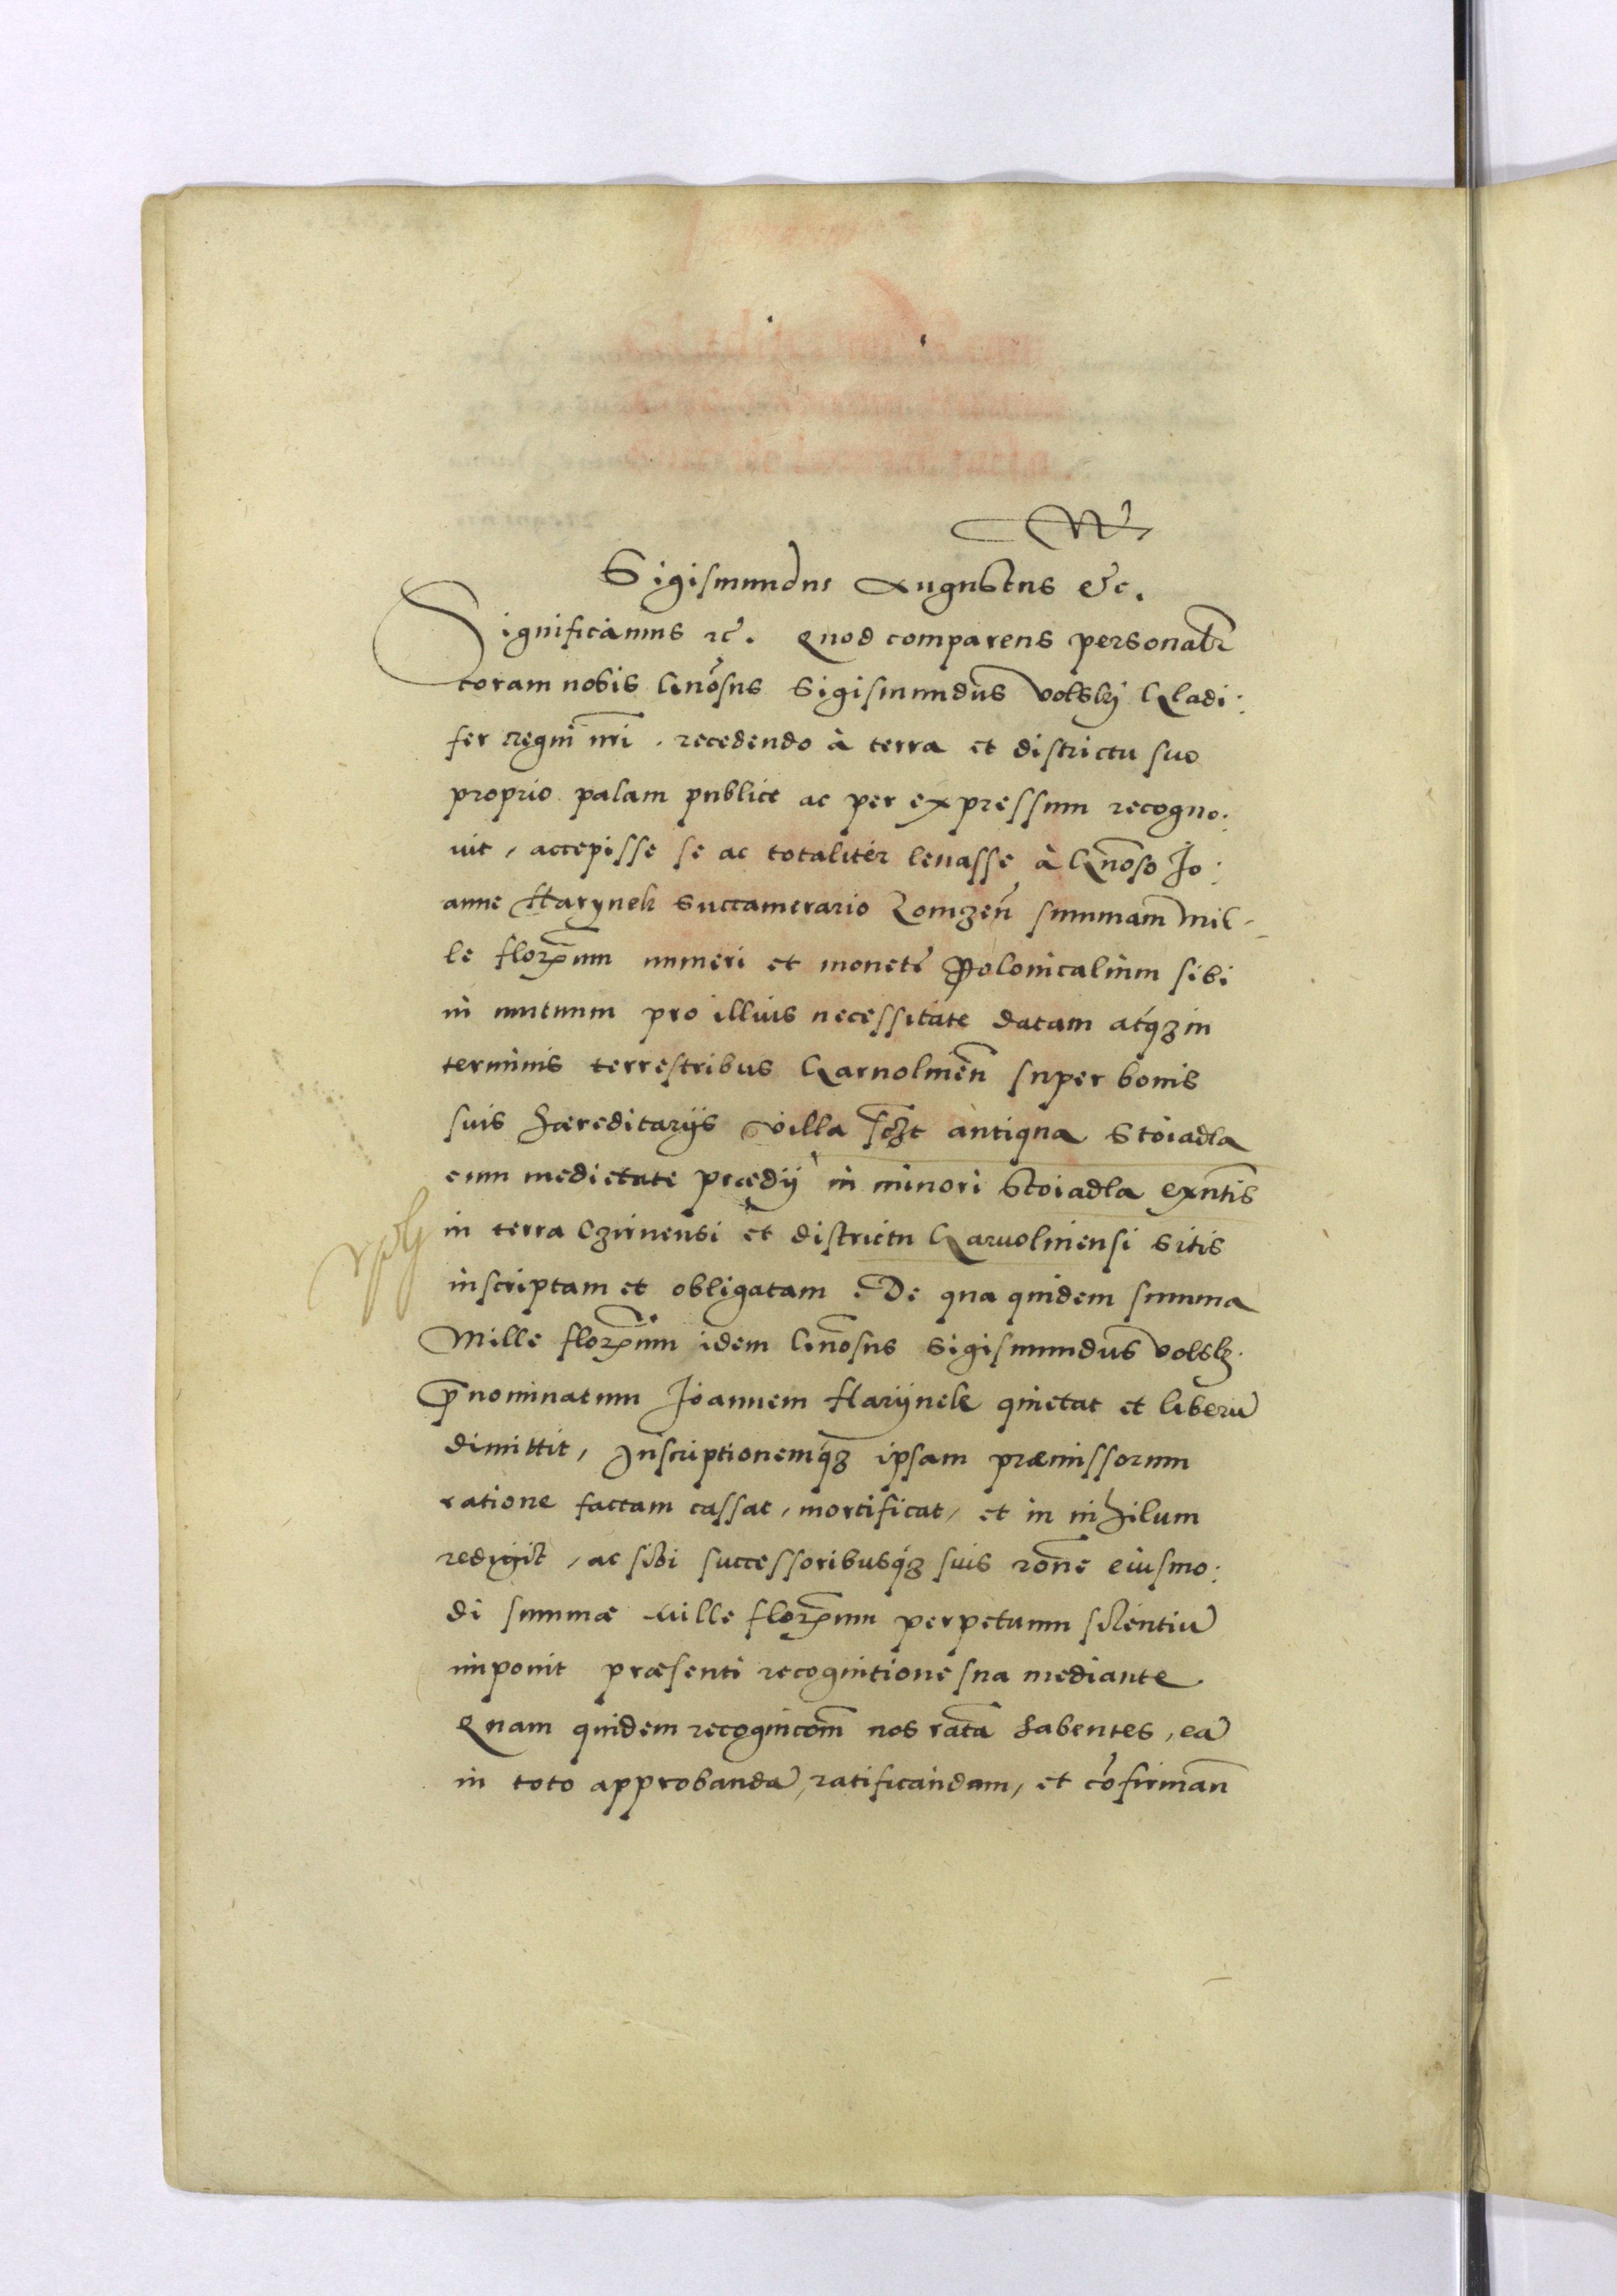 Sigismundus Augustus &c.
Significamus &c. Quod comparens personalr̃
coram nobis Gn̄osus Sigismundus Volskj Gladi:
fer Regni nr̄i, recedendo à terra et districtu suo
proprio palam publice ac per expressum recogno:
uit, accepisse se ac totaliter leuasse à Gn̄oso Jo:
anne Harynek Succamerario Lomzen̄ summam Mil-
le florenum numeri et monetę Polonicalium sibi
in mutuum pro illius necessitate datam atq́ꝫ in
terminis terrestribus Garuolinen̄ super bonis
suis hæreditarijs villa sczt antiqua Stoiadla
cum medietate prædij in minori Stoiadla exn̄tis
in terra Czirnensi et districtu Garuolinensi sitis
inscriptam et obligatam. De qua quidem summa
Mille florenum idem Gn̄osus Sigismundus Volskj
p̄nominatum Joannem Harijnek quietat et liberū
dimittit, Inscriptionemq́ꝫ ipsam præmissorum
ratione factam cassat, mortificat, et in nihilum
redigit, ac sibi successoribusq́ꝫ suis rōne eiusmo:
di summæ Mille florenum perpetuum silentiū
imponit præsenti recognitione sua mediante.
Quam quidem recognicōm̄ nos ratā habentes, eā
in toto approbandā, ratificandam, et cōfirman̄